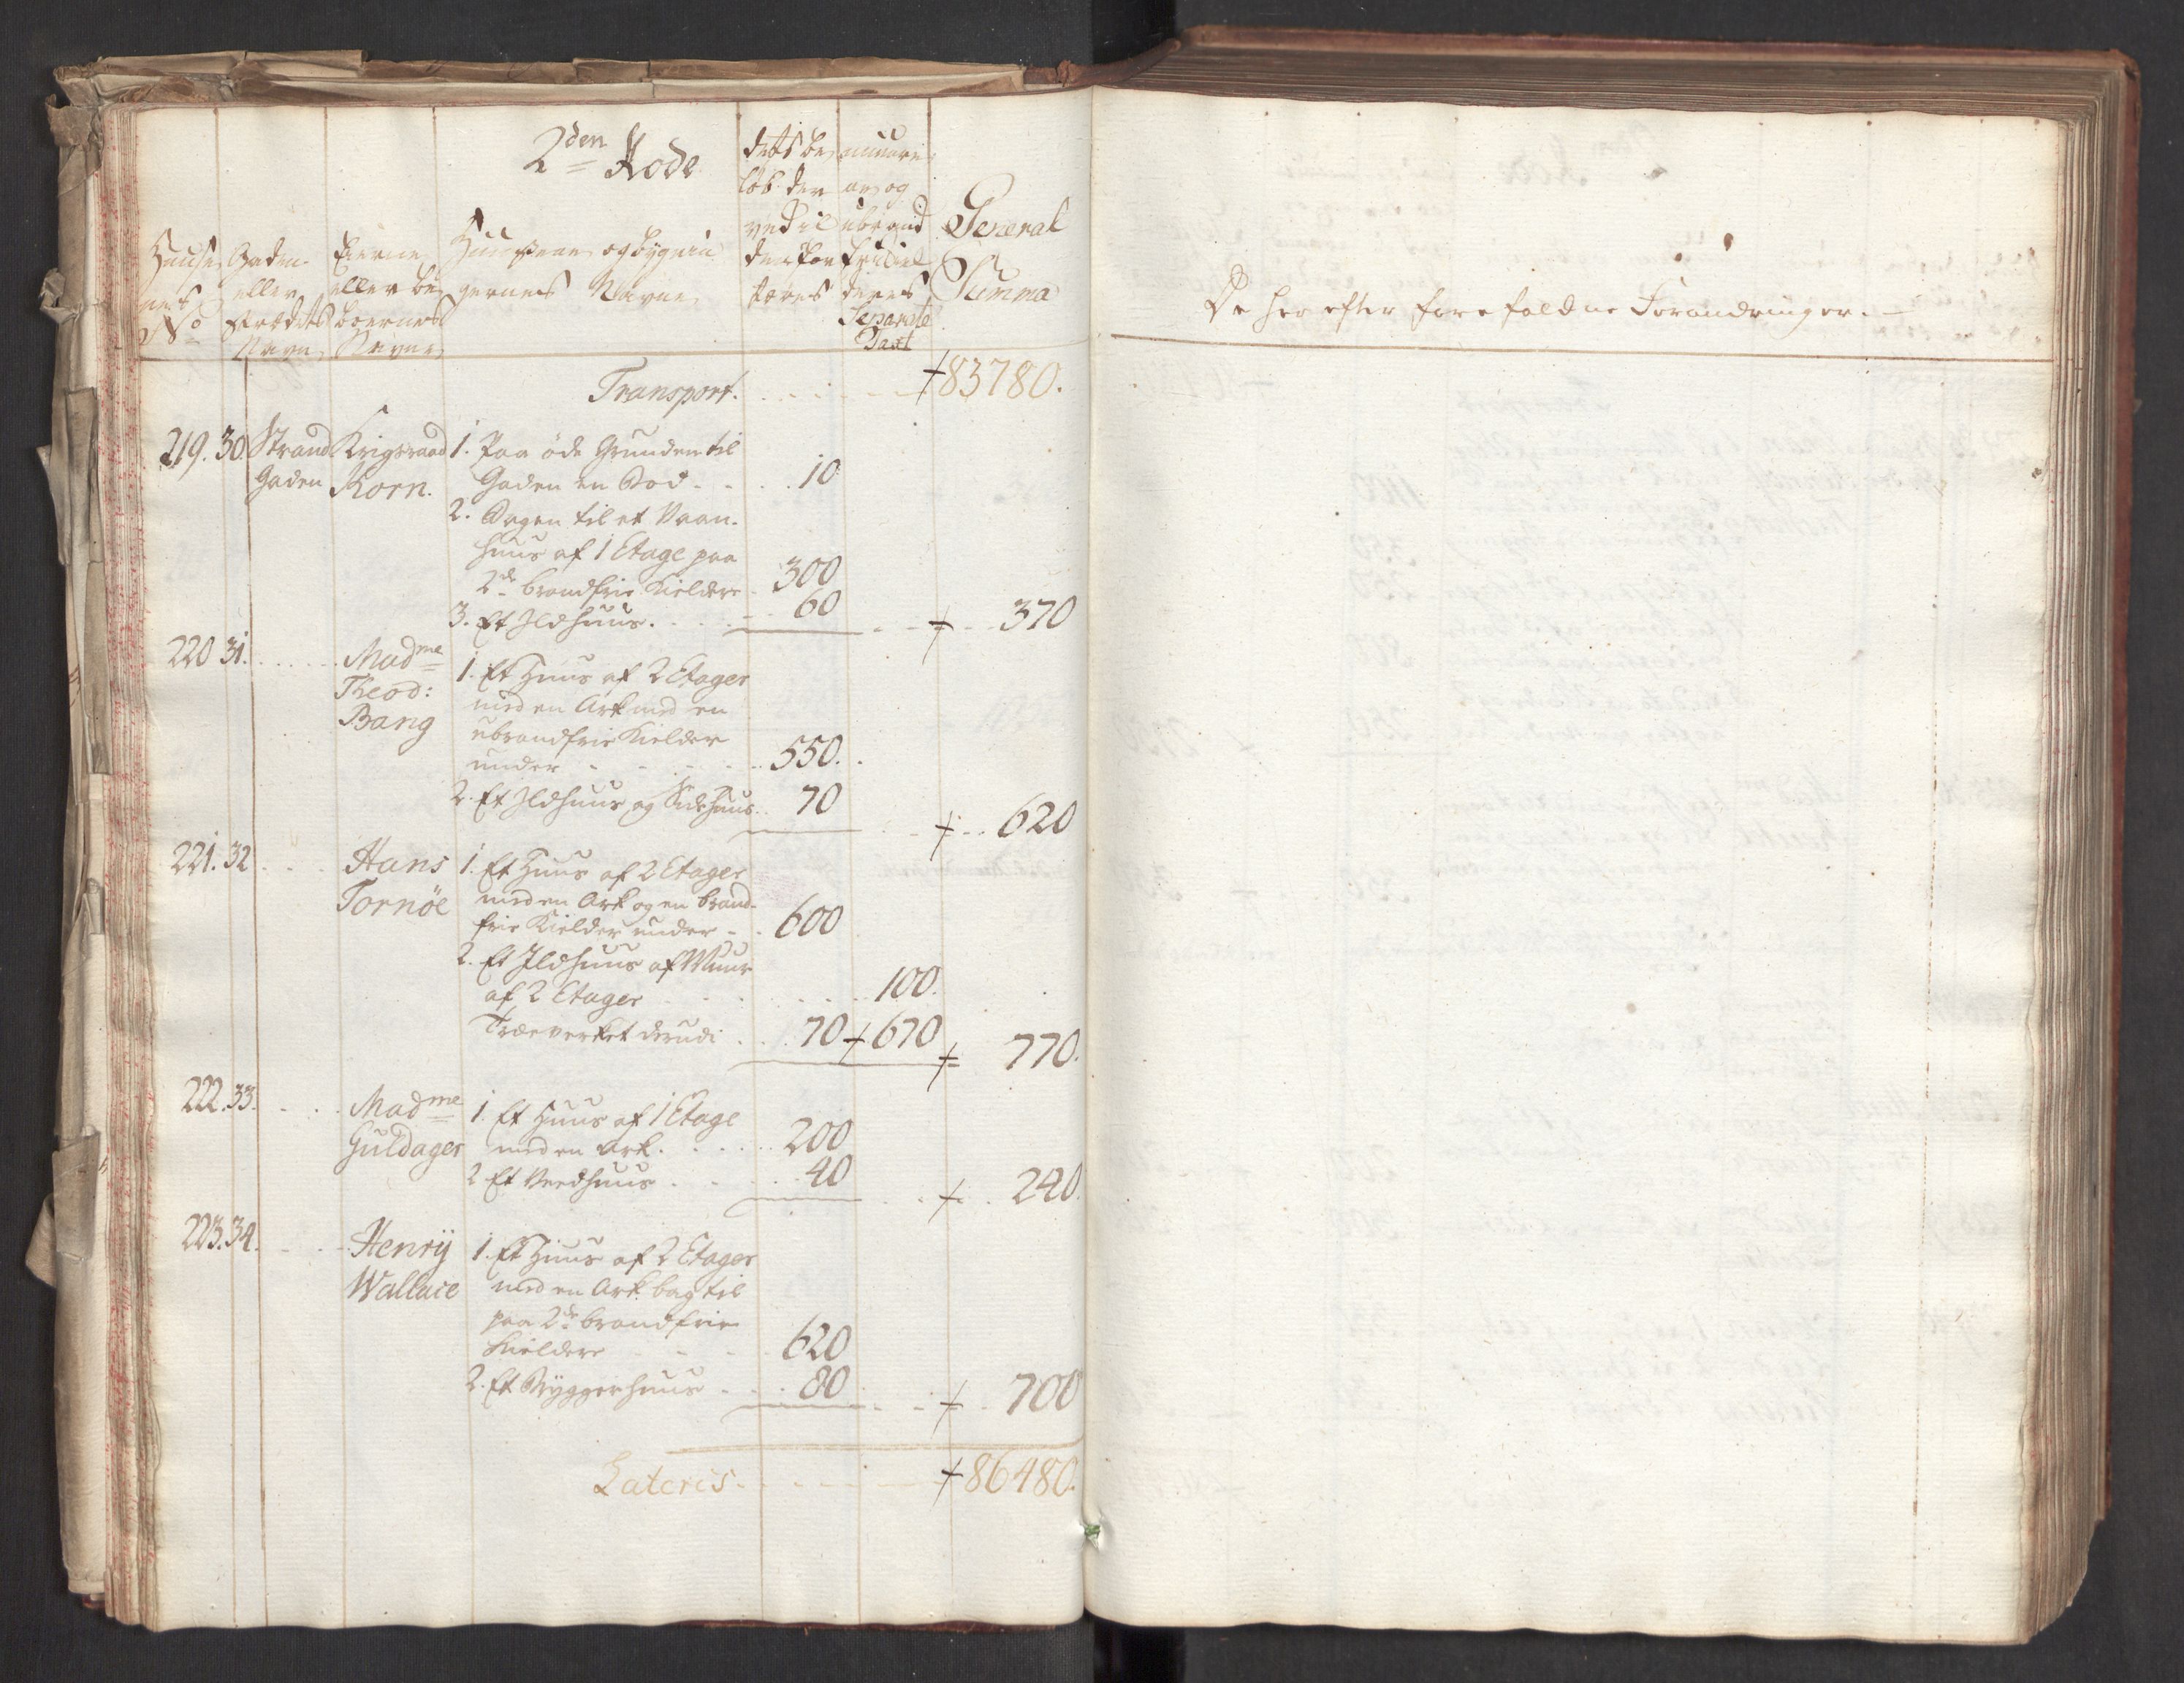 2den Rode
Husenes No
Gaden eller Strædets Navn
Eierne eller beboernes Navne
Huusenes og bygningernes Navne
dets be
løb. der
General
Summa
Separate
Taxt
Transport. 83780.
219. 30. Strand Krigsraad 1. Paa øde Grunden til
Gaden Korn. Gaden en Bod - - 10
2. Bagen til et Vaan-
huus af 1 Etage paa
2de brandfrie Kieldere - 300
3. Et Ildhuus. 60 370
220 31. Madme 1. Et Huus af 2 Etager
Theod: med en Ark med en
Bang ubrandfrie Kielder
under - - 550.
2. Et Ildhuus og Sidehuus. 70 620
221. 32 Hans 1. Et Huus af 2 Etager
Tornöe med en Ark og en brand-
frie Kielder under - - 600
2. Et Ildhuus af Muur
af 2 Etager 100.
Træeverket derudi . 70 670 770.
222. 33. Madme 1. Et Huus af 1 Etage
Guldager med en Ark. 200
2 Et Vedhuus 40 240.
223. 34. Henrÿ 1. Et Huus af 2 Etager
Wallace med en Ark bag til
paa 2de brandfrie
Kieldere 620
2. Et Bryggerhuus 80 700
Lateris 86480.
De her efter forefaldne Forandringer.